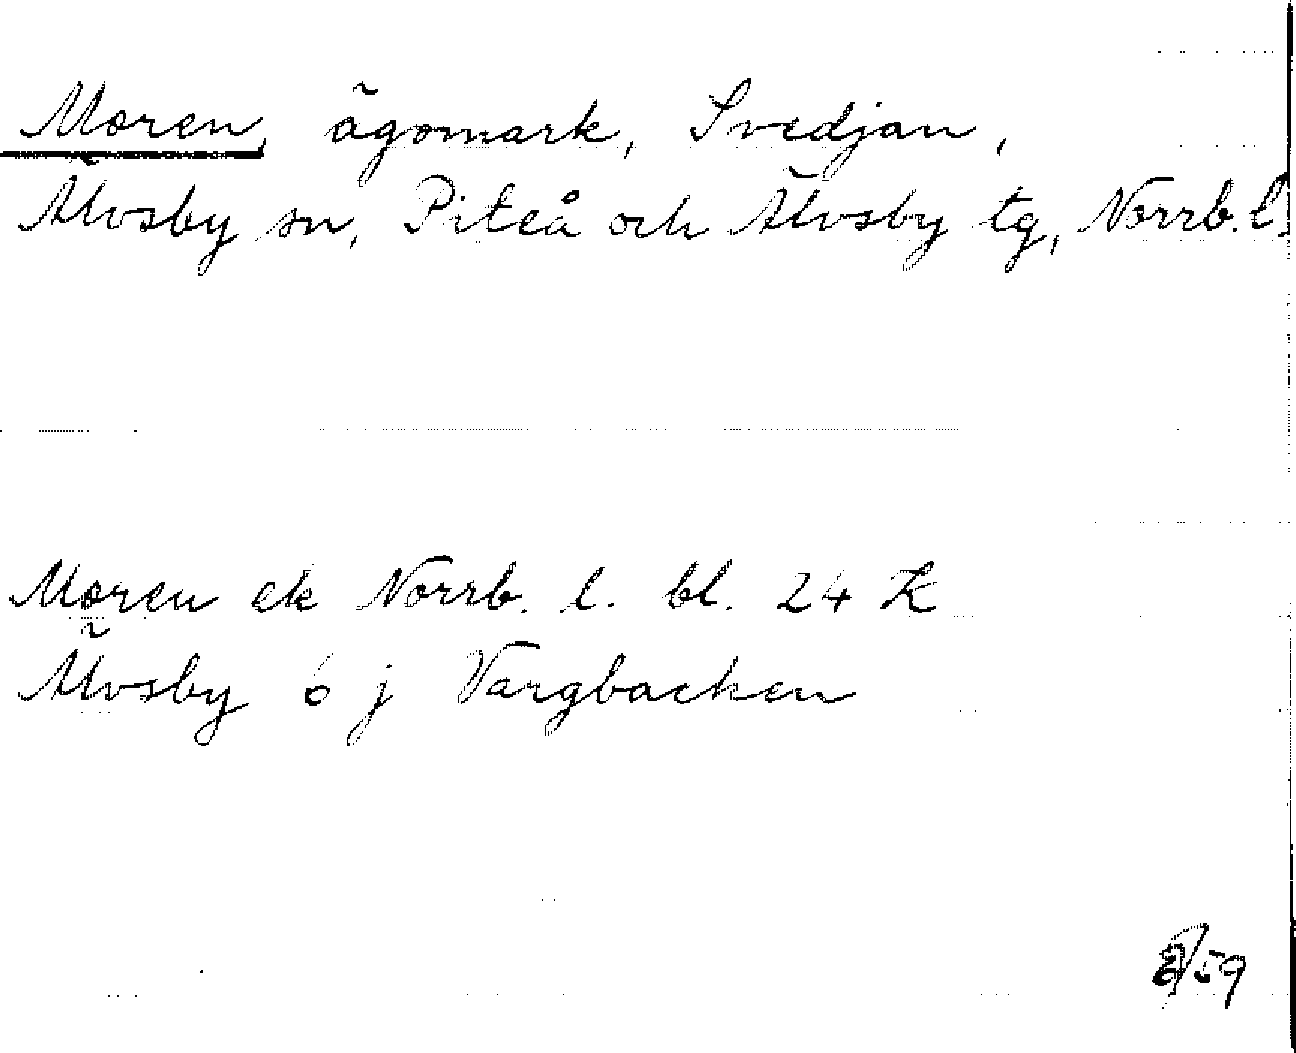 Moren, ägomark, Svedjan,
Älvsby sn, Piteå och Älvsby tg, Norrb. l.
Moren ek Norrb. l. bl. 24 K
Älvsby 6 j Vargbacken
8/59